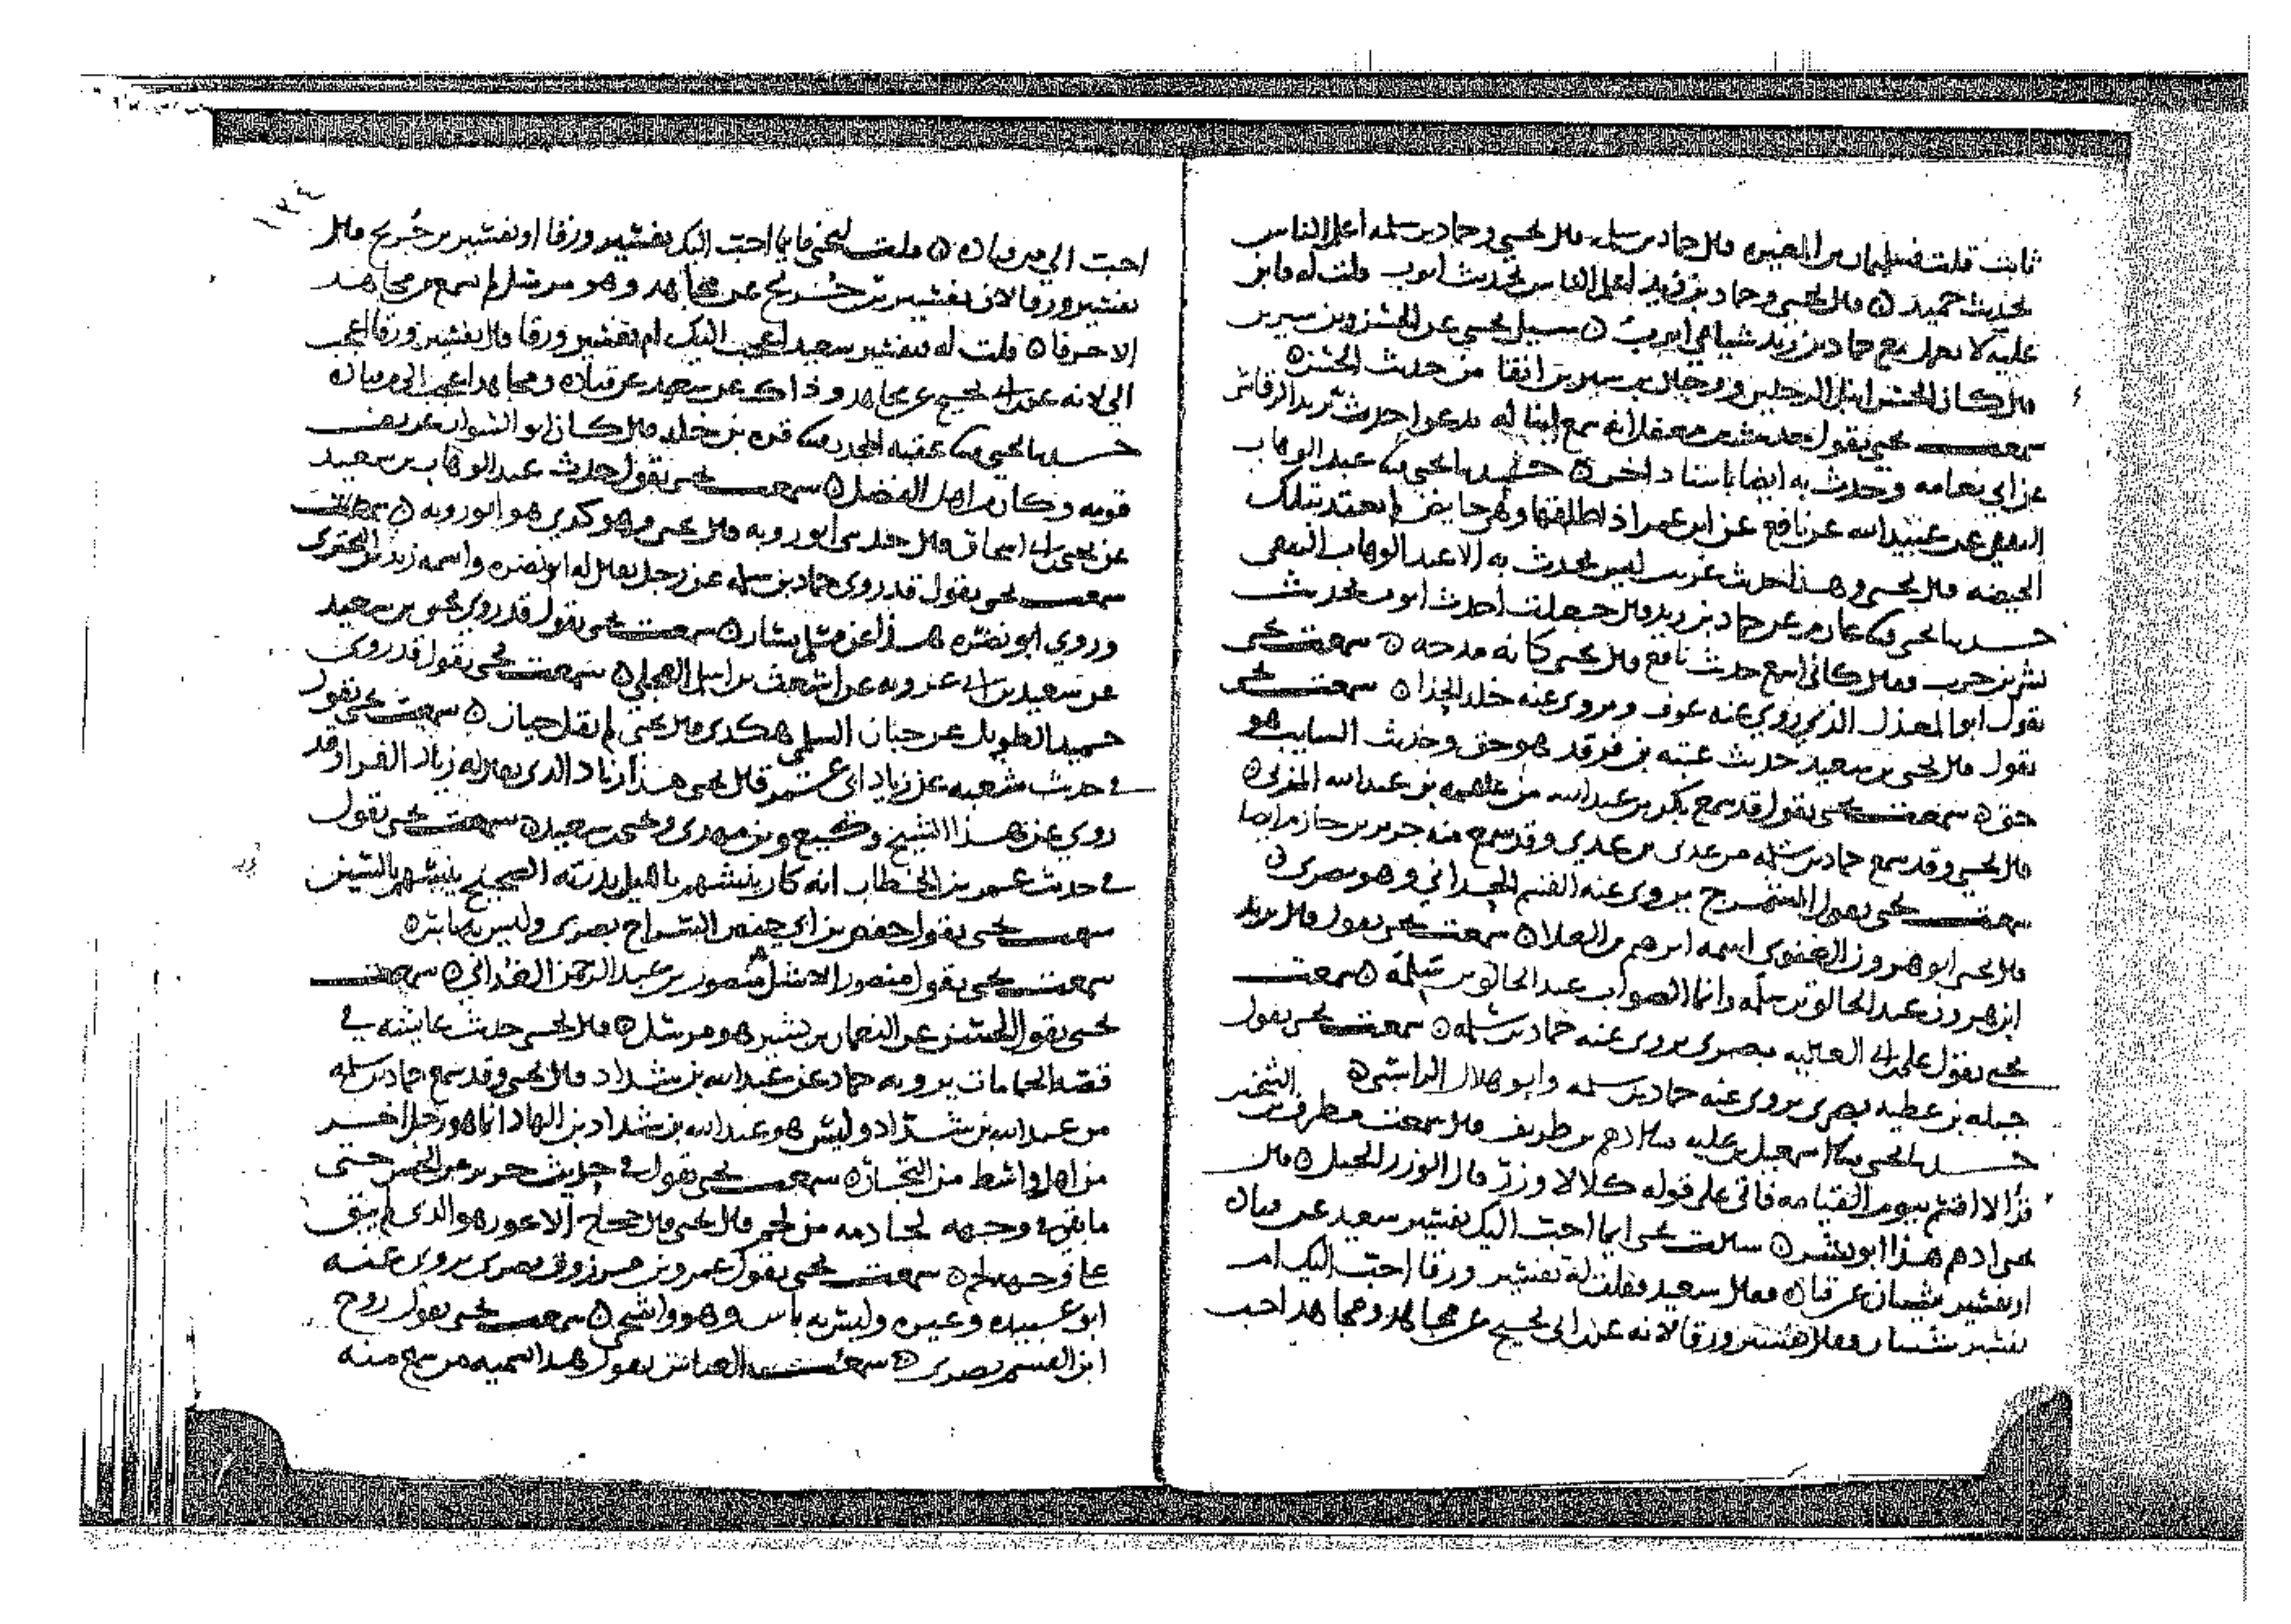 ثابت قلت فسليمان بن المغيره قال حماد بن سلمه قال يحيى وحماد بن سلمه اعلم الناس
بحديث حميد ٥ قال يحيى وحماد بن زيد اعلم الناس بحديث ايوب قلت له فابن
عليه لا يعدل مع حماد بن زيد شيا في ايوب ٥ سيل يحيى عن الحسن وبن سيرين
قال كان الحسن انبل الرجلين ورجال بن سيرين انقا من حديث الحسن ٥
سمعت يحيى يقول بن معقل انه سمع ابنا له يدعوا حدث يزيد الرقاش
عن ابي نعامه وحدث به ايضا باسناد اخر ٥ حدثنا يحيى نا عبد الوهاب
الثقفي عن عبيد الله عن نافع عن ابن عمر اذا طلقها وهي حايض لم تعتد بتلك
الحيضه قال يحيى وهذا حديث غريب ليس يحدث به الا عبد الوهاب الثقفي
حدثنا يحيى نا عارم عن حماد بن زيد قال جعلت احدث ايوب بحديث
بشر بن حرب فقال كاني اسمع حديث نافع قال يحيى كانه مدحه ٥ سمعت يحيى
يقول ابو المعذل الذي روى عنه عوف ويروى عنه خلد الحذا ٥ سمعت يحيى
يقول قال يحيى بن سعيد حديث عتبه بن فرقد هو حق وحديث السايب هو
حق ٥ سمعت يحيى يقول قد سمع بكر بن عبد الله من علقمه بن عبد الله المزني ٥
قال يحيى وقد سمع حماد بن سلمه من عدي بن عدي وقد سمع منه جرير بن حازم ايضا
سمعت يحيى يقول يروى عنه القسم الحداني وهو بصرى ٥
قال يحيى ابو هرون الغنوي اسمه ابرهيم بن العلا ٥ سمعت يحيى يقول قال يزيد
ابن هرون عبد الخالق بن سلمه وانما الصواب عبد الخالق بن سلمة ٥ سمعت
يحيى يقول على بن ابي العاليه بصرى يروى عنه حماد بن سلمه ٥ سمعت يحيى يقول
جبله بن عطيه بصرى يروى عنه حماد بن سلمه وابو هلال الراسبي ٥
حدثنا يحيى نا اسمعيل بن عليه نا ادهم بن طريف قال سمعت مطرف بن الشخير
قرا لا اقسم بيوم القيامه فاتى على قوله كلا لا وزر قال الوزر الجبل ٥ قال
يحيى ادهم هذا ابو بشر ٥ سالت يحيى ايما احب اليك تفسير سعيد عن قتاده
او تفسير شيبان عن قتاده فقال سعيد فقلت له تفسير ورقا احب اليك ام
تفسير شيبان فقال تفسير ورقا لانه عن ابن ابي نجيح عن مجاهد ومجاهد احب
١٣٤
احب الي من قتاده ٥ قلت ليحيى فايما احب اليك تفسير ورقا او تفسير بن جريج قال
تفسير ورقا لان تفسير بن جريج عن مجاهد وهو مرسل لم يسمع من مجاهد
الا حرفا ٥ قلت له فتفسير سعيد اعجب اليك ام تفسير ورقا قال تفسير ورقا اعجب
الي لانه عن ابن ابي نجيح عن مجاهد وذاك عن سعيد عن قتاده ومجاهد اعجب الي من قتاده
حدثنا يحيى نا عقبه المجدر نا قره بن خلد قال كان ابو السوار عريف
قومه وكان من اهل الفضل ٥ سمعت يحيى يقول حدث عبد الوهاب بن سعيد
عن يحيى بن ابي اسحاق قال حدثنى ابو رويه قال يحيى وهو كذي هو ابو رويه ٥
سمعت يحيى يقول قد روى حماد بن سلمه عن رجل يقال له ابو نضره واسمه زيد بن البحتري
وروى ابو نضره هذا عن مثنى بشار ٥ سمعت يحيى يقول قد روى يحيى بن سعيد
عن سعيد بن ابي عروبه عن اشعث بن ابي العجلي ٥ سمعت يحيى يقول قد روى
حميد الطويل عن حبان السلمي هكذي قال يحيى لم يقل حيان ٥ سمعت يحيى يقول
في حديث شعبه عن زياد ابي عمر قال يحيى هذا زياد الذي يقال له زياد الفرا وقد
روى عن هذا الشيخ وكيع وبن مهدي ويحيى بن سعيد ٥ سمعت يحيى يقول
في حديث عمر بن الخطاب انه كان الصحيح ينتشهر بالشين
سمعت يحيى يقول حفص بن ابي حفص السراج بصرى وليس به باس ٥
سمعت يحيى يقول منصور الاشل منصور بن عبد الرحمن الغداني ٥ سمعت
يحيى يقول الحسن عن النعمان بن بشير هو مرسل ٥ قال يحيى حديث عايشه في
قصه الحمامات يرويه حماد عن عبد الله بن شداد قال يحيى وقد سمع حماد بن سلمه
من عبد الله بن شداد وليس هو عبد الله بن شداد بن الهاد انما هو رجل اخر
من اهل واسط من التجار ٥ سمعت يحيى يقول في حديث جرير عن الحسن حتى
ما بقي في وجهه لحادمه من لحم قال يحيى قال حجاج الاعور هو الذي لم يبق
على وجهه لحم ٥ سمعت يحيى يقول عمرو بن مرزوق بصرى يروى عنه
ابو عبيده وغيره وليس به باس وهو واشحي ٥ سمعت يحيى يقول روح
ابن القسم بصرى ٥ سمعت العباس يقول هذا تسميه من سمع منه